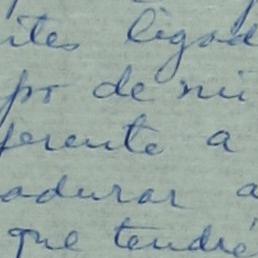 ites ligad
po de mi
ferente a
adurar a
que tendré